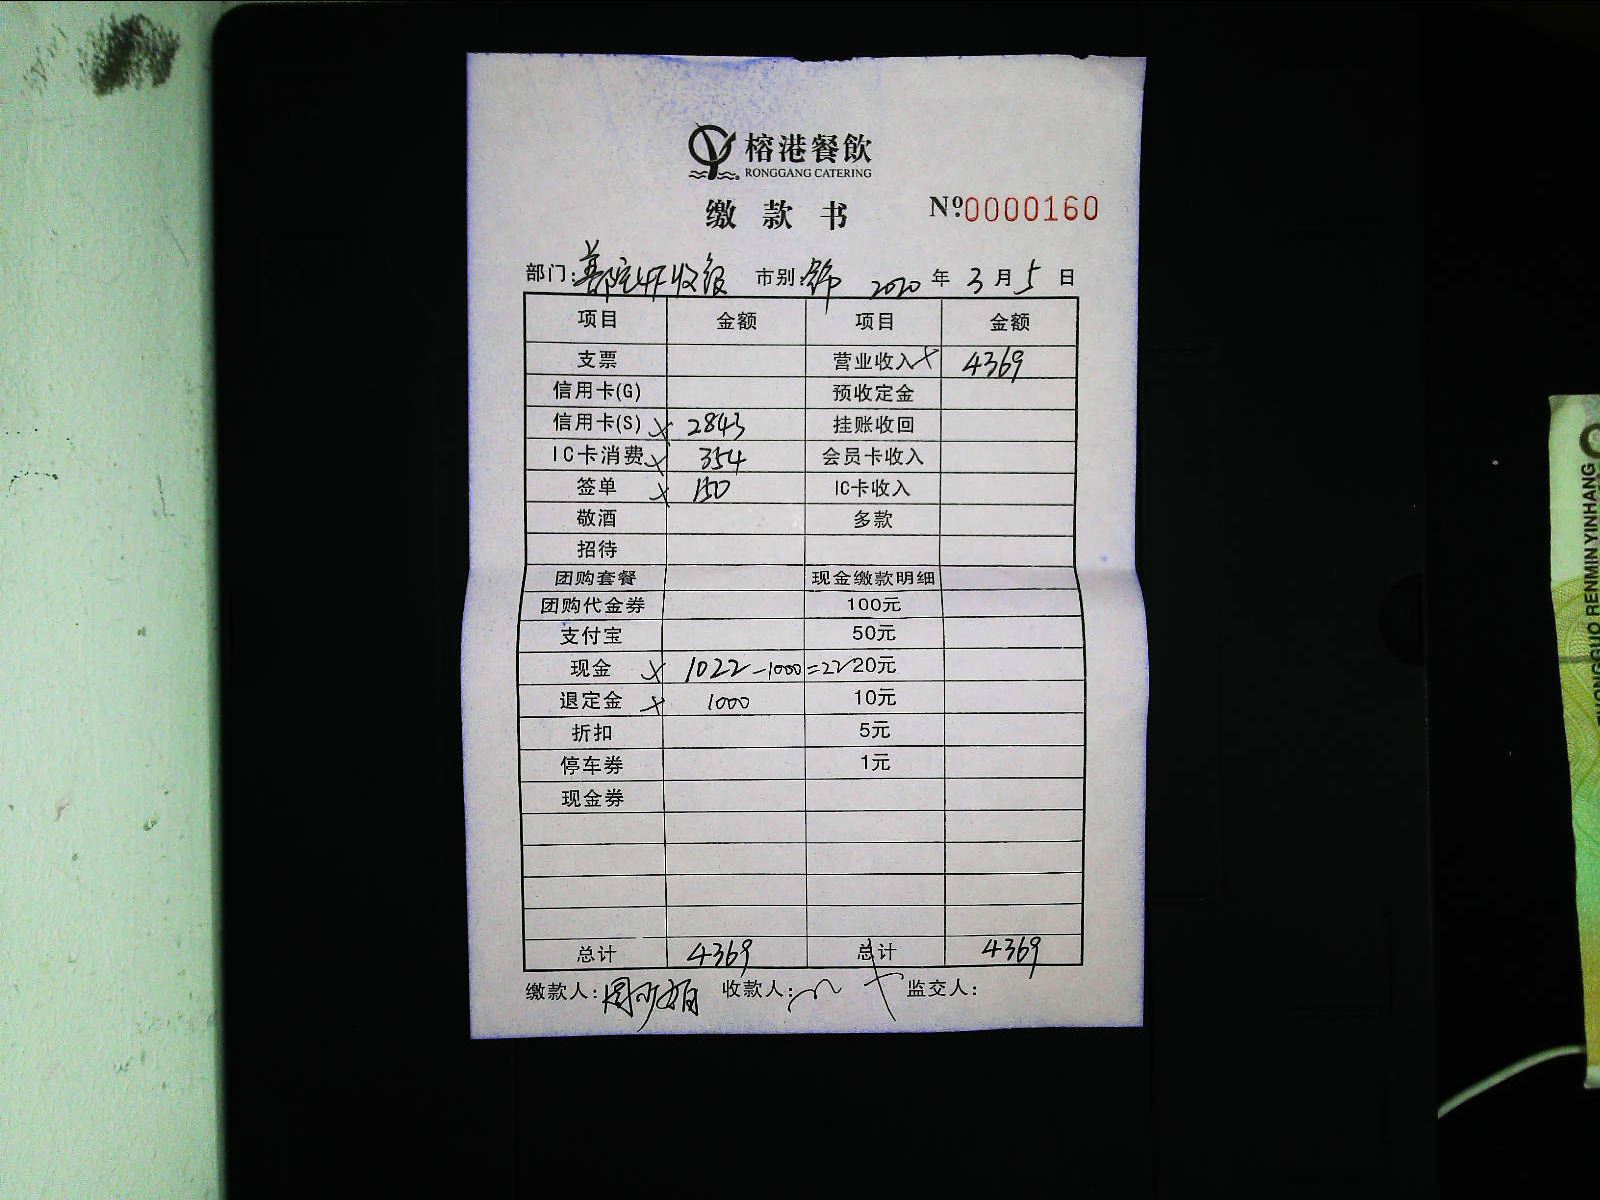 榕港餐飲
RONGGANG CATERING
缴款书 №0000160
部门: 4F收银 市别: 2020年3月5日
项目 金额 项目 金额
支票 营业收入 × 4369
信用卡(G) 预收定金
信用卡(S) × 2843 挂账收回
IC卡消费 × 354 会员卡收入
签单 × 150 IC卡收入
敬酒 多款
招待
团购套餐 现金缴款明细
团购代金券 100元
支付宝 50元
现金 × 1022-1000=22 20元
退定金 × 1000 10元
折扣 5元
停车券 1元
现金券
总计 4369 总计 4369
缴款人: 收款人: 监交人:
ZHONGGUO RENMIN YINHANG